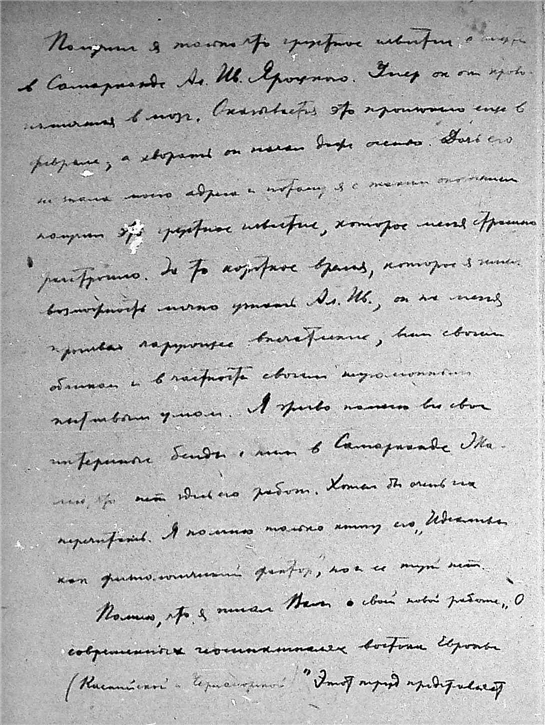 Получил я только что грустное известие о смерти
в Самарканде Ал. Ив. Яроцкого. Умер он от крово-
излияния в мозг. Оказывается это произошло еще в
феврале, а хворать он начал даже осенью. Дочь его
не знала моего адреса и потому я с таким опозданием
получил это грустное известие, которое меня страшно
расстроило. За то короткое время, которое я имел
возможность лично узнать Ал. Ив., он на меня
произвел чарующее впечатление, всем своим
обликом и в частности своим
пытливым умом. Я живо помню все свои
интересные беседы с ним в Самарканде. Жа-
лею, что нет здесь его работ. Хотел бы очень их
перечитать. Я помню только книгу его „Идеализм
как физиологический фактор", но и ее тут нет.
Помню, что я писал Вам о своей новой работе „О
современных геосинклиналях востока Европы
(Каспийской и Черноморской)" Этот труд представляет